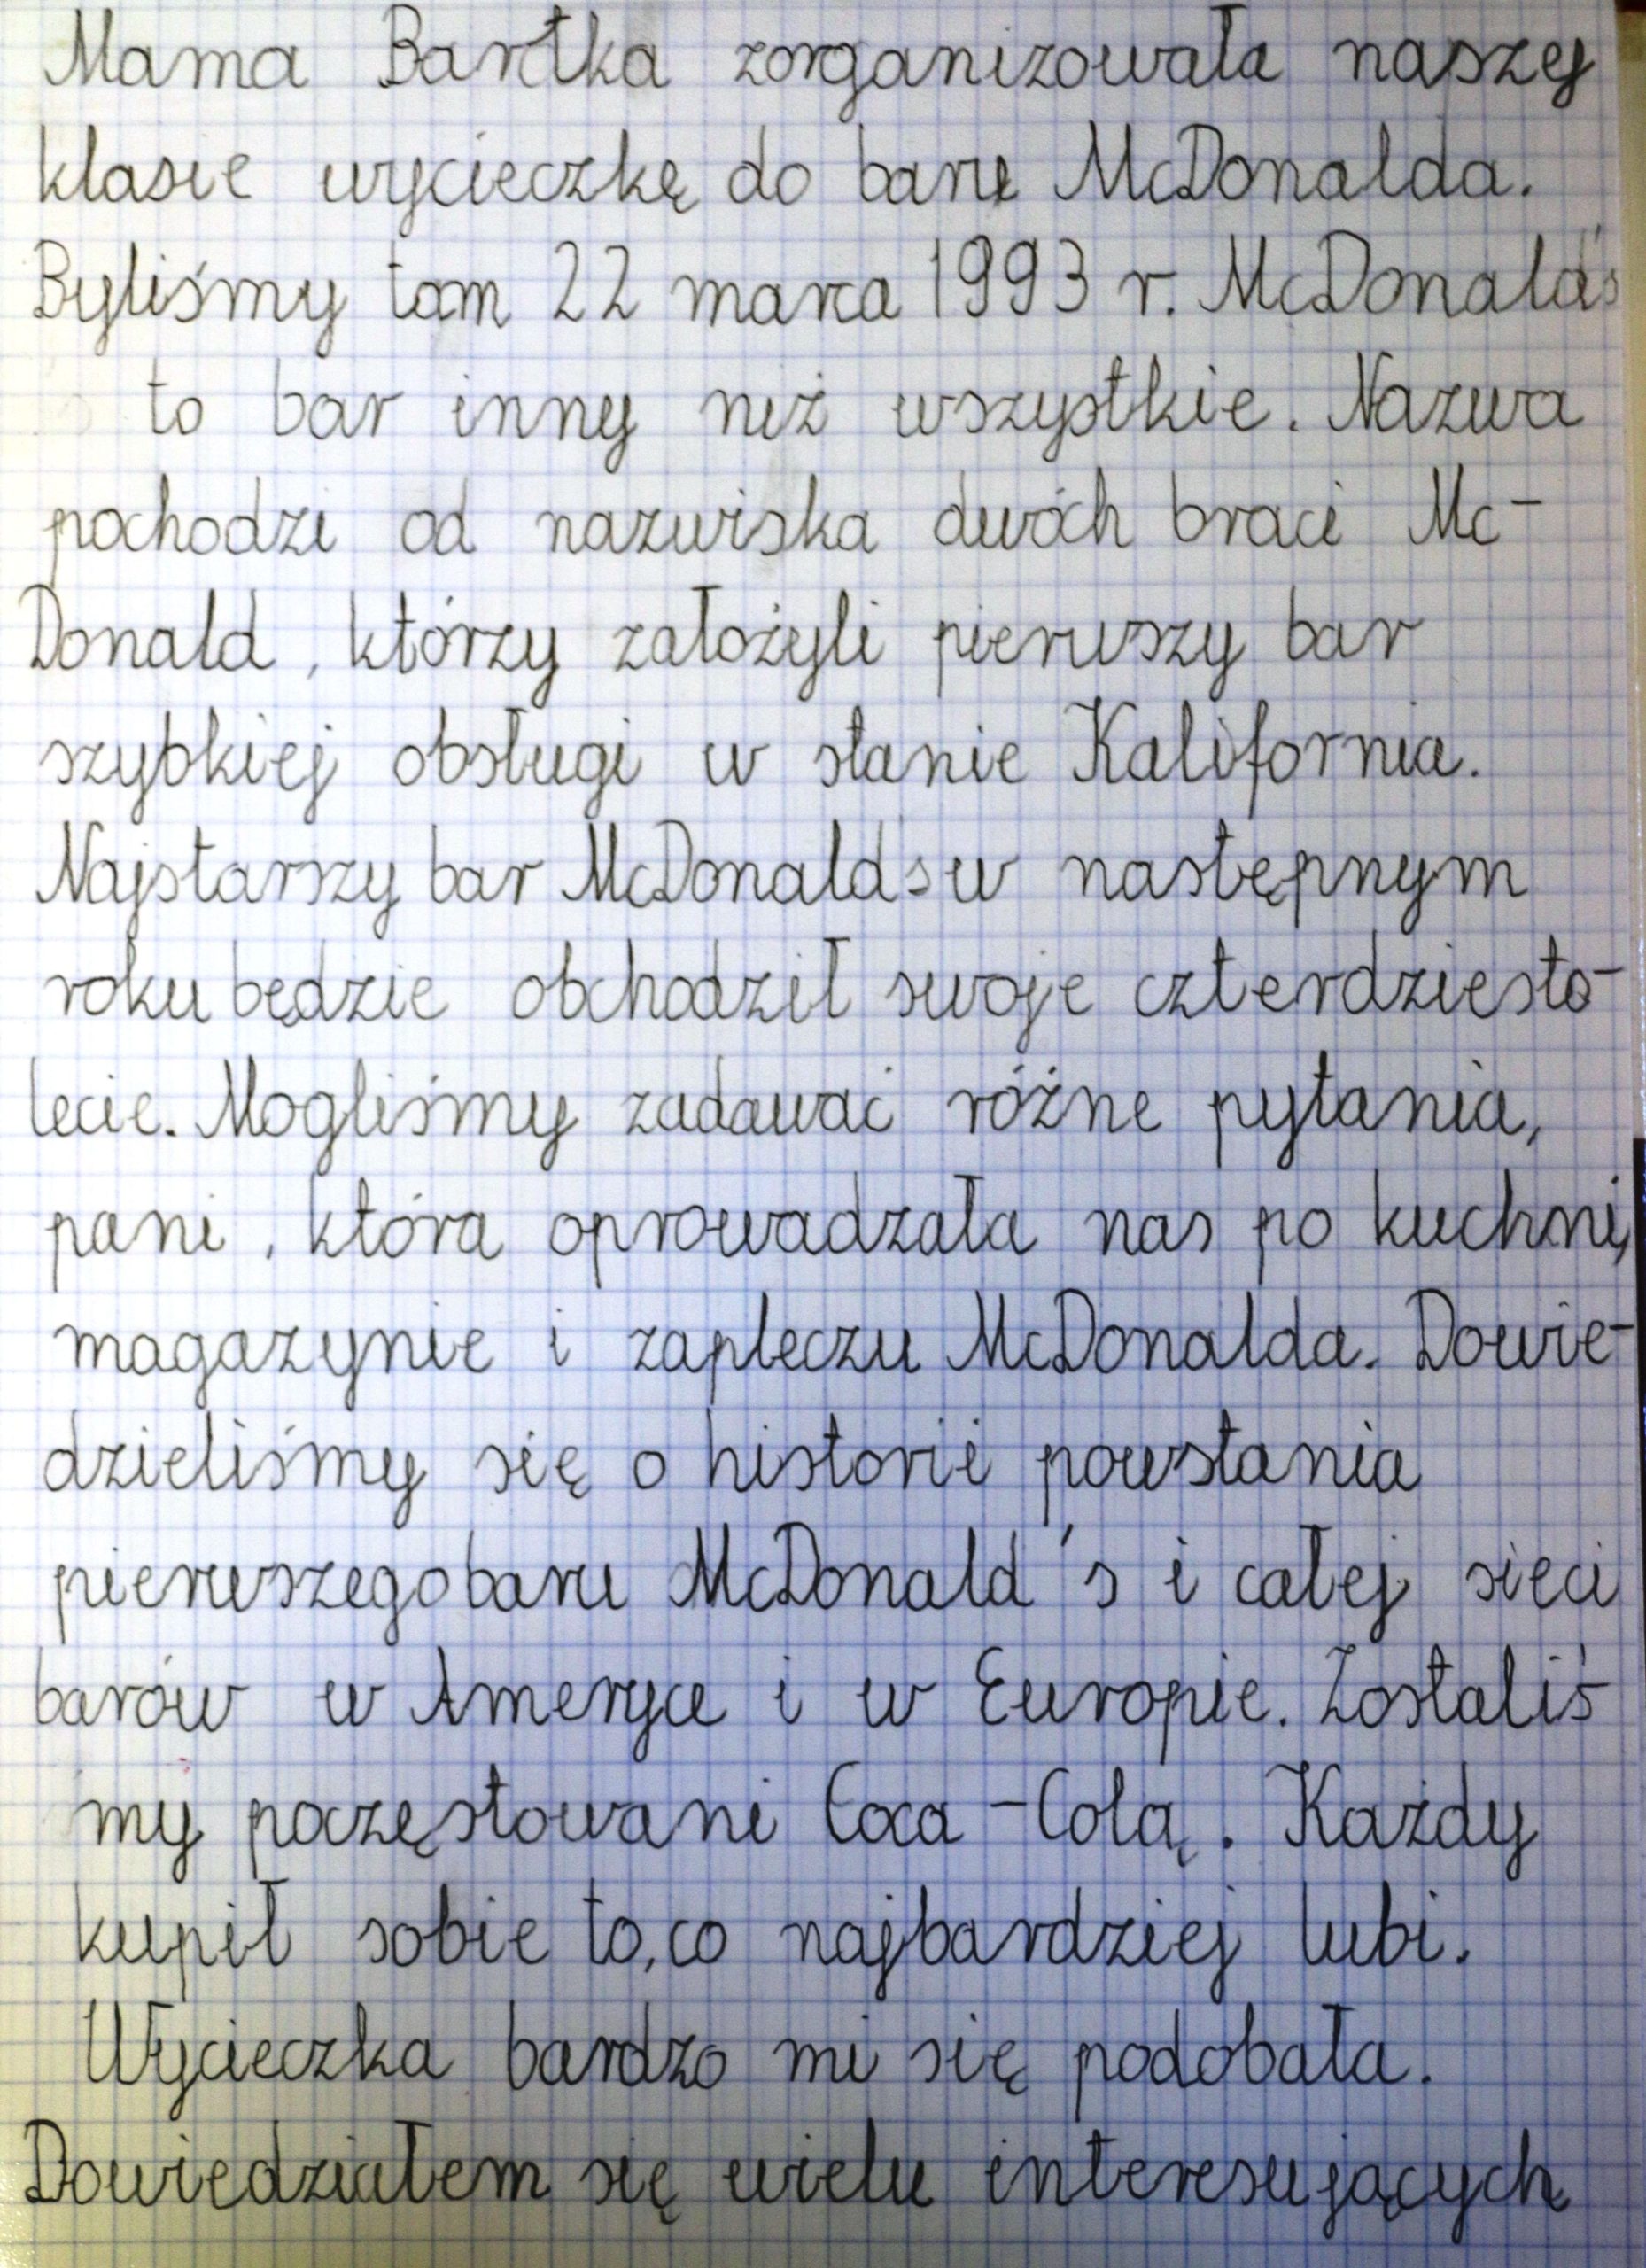 Mama Bartka zorganizowała naszej
klasie wycieczkę do baru McDonalda.
Byliśmy tam 22 marca 1993 r. McDonald's
to bar inny niż wszystkie. Nazwa
pochodzi od nazwiska dwóch braci Mc-
Donald, którzy założyli pierwszy bar
szybkiej obsługi w stanie Kalifornia.
Najstarszy bar McDonald's w następnym
roku będzie obchodził swoje czterdziesto-
lecie. Mogliśmy zadawać różne pytania,
pani, która oprowadzała nas po kuchni,
magazynie i zapleczu McDonalda. Dowie-
dzieliśmy się o historii powstania
pierwszego baru McDonald's i całej sieci
barów w Ameryce i w Europie. Zostaliś
my poczęstowani Coca-Colą. Każdy
kupił sobie to, co najbardziej lubi.
Wycieczka bardzo mi się podobała.
Dowiedziałem się wielu interesujących